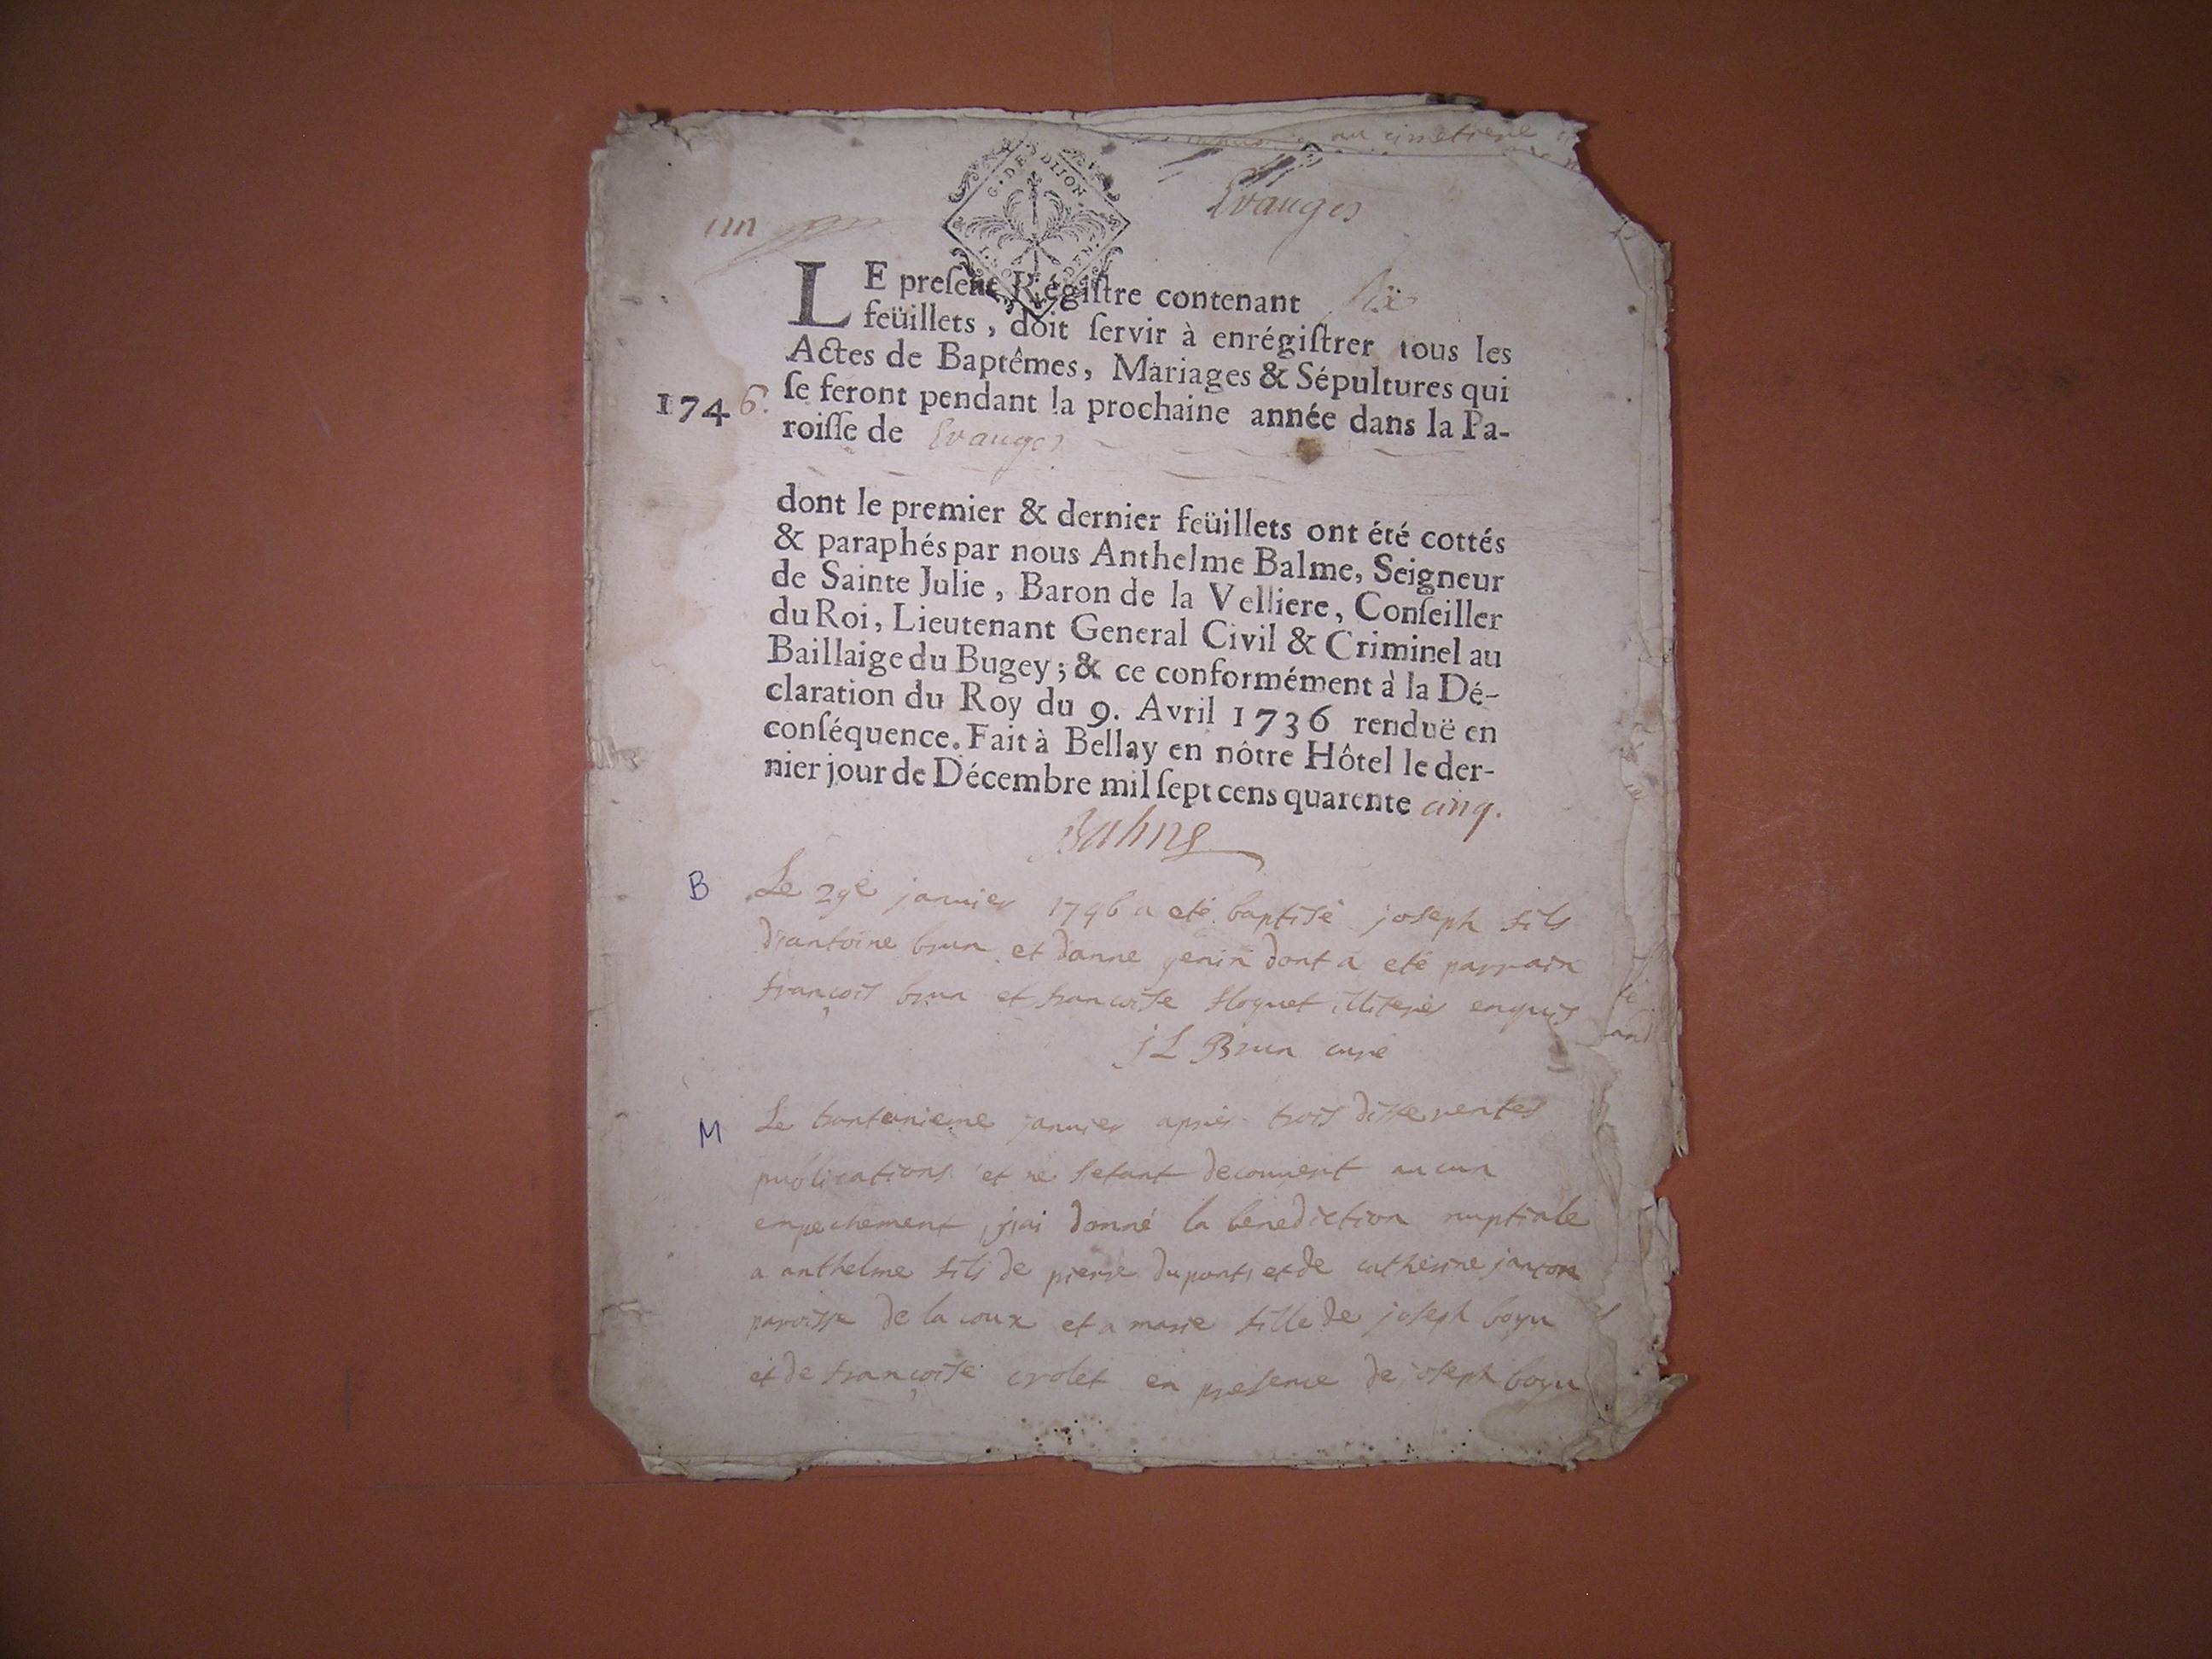 au cimetiere
G. DE DIJON
Evanges
un
LE preſent Régiſtre contenant six
feüillets, doit ſervir à enrégiſtrer tous les
Actes de Baptêmes, Mariages & Sépultures qui
1746. ſe feront pendant la prochaine année dans la Pa-
roiſſe de Evanges
dont le premier & dernier feüillets ont été cottés
& paraphés par nous Anthelme Balme, Seigneur
de Sainte Julie, Baron de la Velliere, Conſeiller
du Roi, Lieutenant General Civil & Criminel au
Baillaige du Bugey; & ce conformément à la Dé-
claration du Roy du 9. Avril 1736 renduë en
conſéquence. Fait à Bellay en nôtre Hôtel le der-
nier jour de Décembre mil ſept cens quarente cinq.
Balme
B Le 29e janvier 1746 a eté baptisé joseph fils
d'antoine brun et d'anne genin dont a eté parrain
françois brun et francoise floquet illiterés enquis
j L Brun curé
M Le trenteunieme janvier aprés trois differentes
publications et ne setant decouvert aucun
empechement, j'ai donné la benediction nuptiale
a anthelme fils de pierre dupont et de catherine janton
paroisse de la coux et a marie fille de joseph boyu
et de françoise crolet en presence de joseph boyu